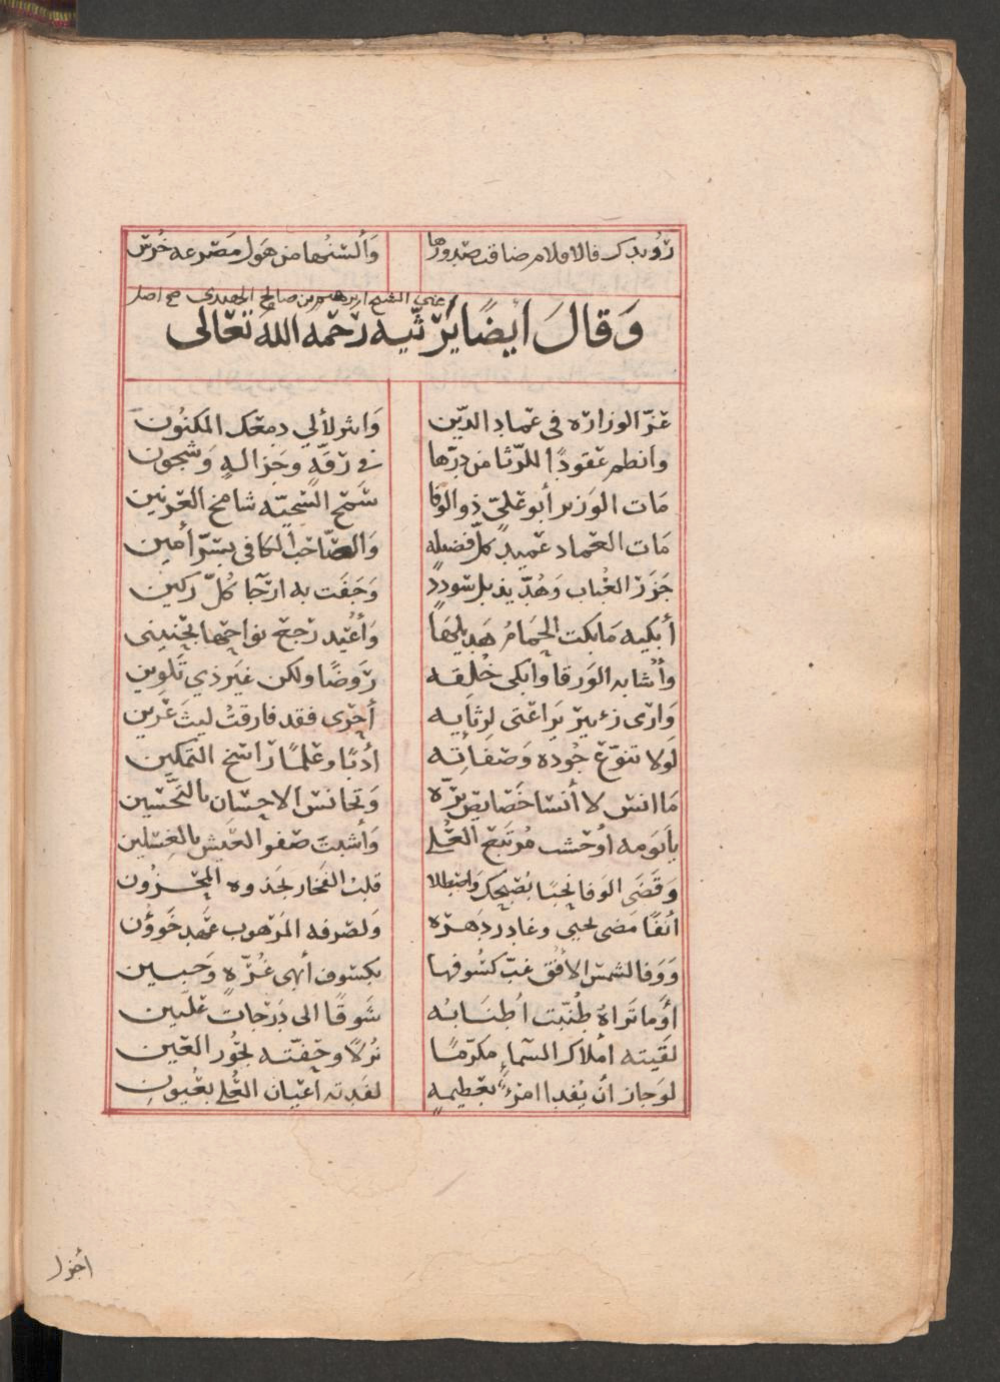 رُويدك فالاقلام ضاقت صدورها وألسنُها من هول مصرعه خُرس
يعني الشيخ ابرهيم بن صالح الهندي صح اصل
وَقالَ أيضًا يَرْثيه رَحمَه اللهُ تعَالى
عَزّ الوزارة في عماد الدّين وَانثر لألي دمعك المكنُون
وانظم عقودًا للرّثا من دُرّها في رقّةٍ وجَزالةٍ وشجون
مَات الوَزير أبو عَليّ ذو الوفا سَمح السّجيّه شامخ العرنين
مَات العماد عَميد كلّ فضيله وَالصّاحب الكافي بسرّ أمين
جَزَر العُباب وَهُدّ يذبل سُوددٍ وَجَفَت به ارجَا كُلّ ركين
أبكيه مَا بكت الحَمامُ هَديلهَا وَأعُيد رَجع نواحِها بحنيني
وأشابه الوَرقا وابكي خُلقه رَوضًا ولكن غيَر ذي تَلوين
وَارى زئير يَراعَتى لرثايه أحرى فقد فارقتُ ليثَ عَرين
لَولا تنوّع جُوده وَصفَاتِه أدبًا وعلمًا راسخ التمكين
مَا انسَ لا أنسَا خصَايص برّه وَتجانس الاحسان بالتَحسين
يا يَومه أوحَشت مُرتَبع العُلى وَأشبتَ صَفو العَيش بالغِسلين
وَقَضَى الوَفا نحبًا
أنفًا مَضى يحيى وغادر دَهره وَلصرفه المَرهوب عَهد خَوؤن
وَوَفا لشمس الأفُق غبّ كسُوفها بكسوف أبهى غُرّةٍ وَجبين
أوَما تَراهُ طُنّبت أطنَابُه شَوقًا الى دَرَجات عليّين
لقَيته أملاك السّماءِ مكرّمًا نُزلًا وحَفّته بحُور العَين
لوَجاز أن يُفدا امرُءٌ بعَظيمةٍ لفَدته أعيَان العُلى بعُيونِ